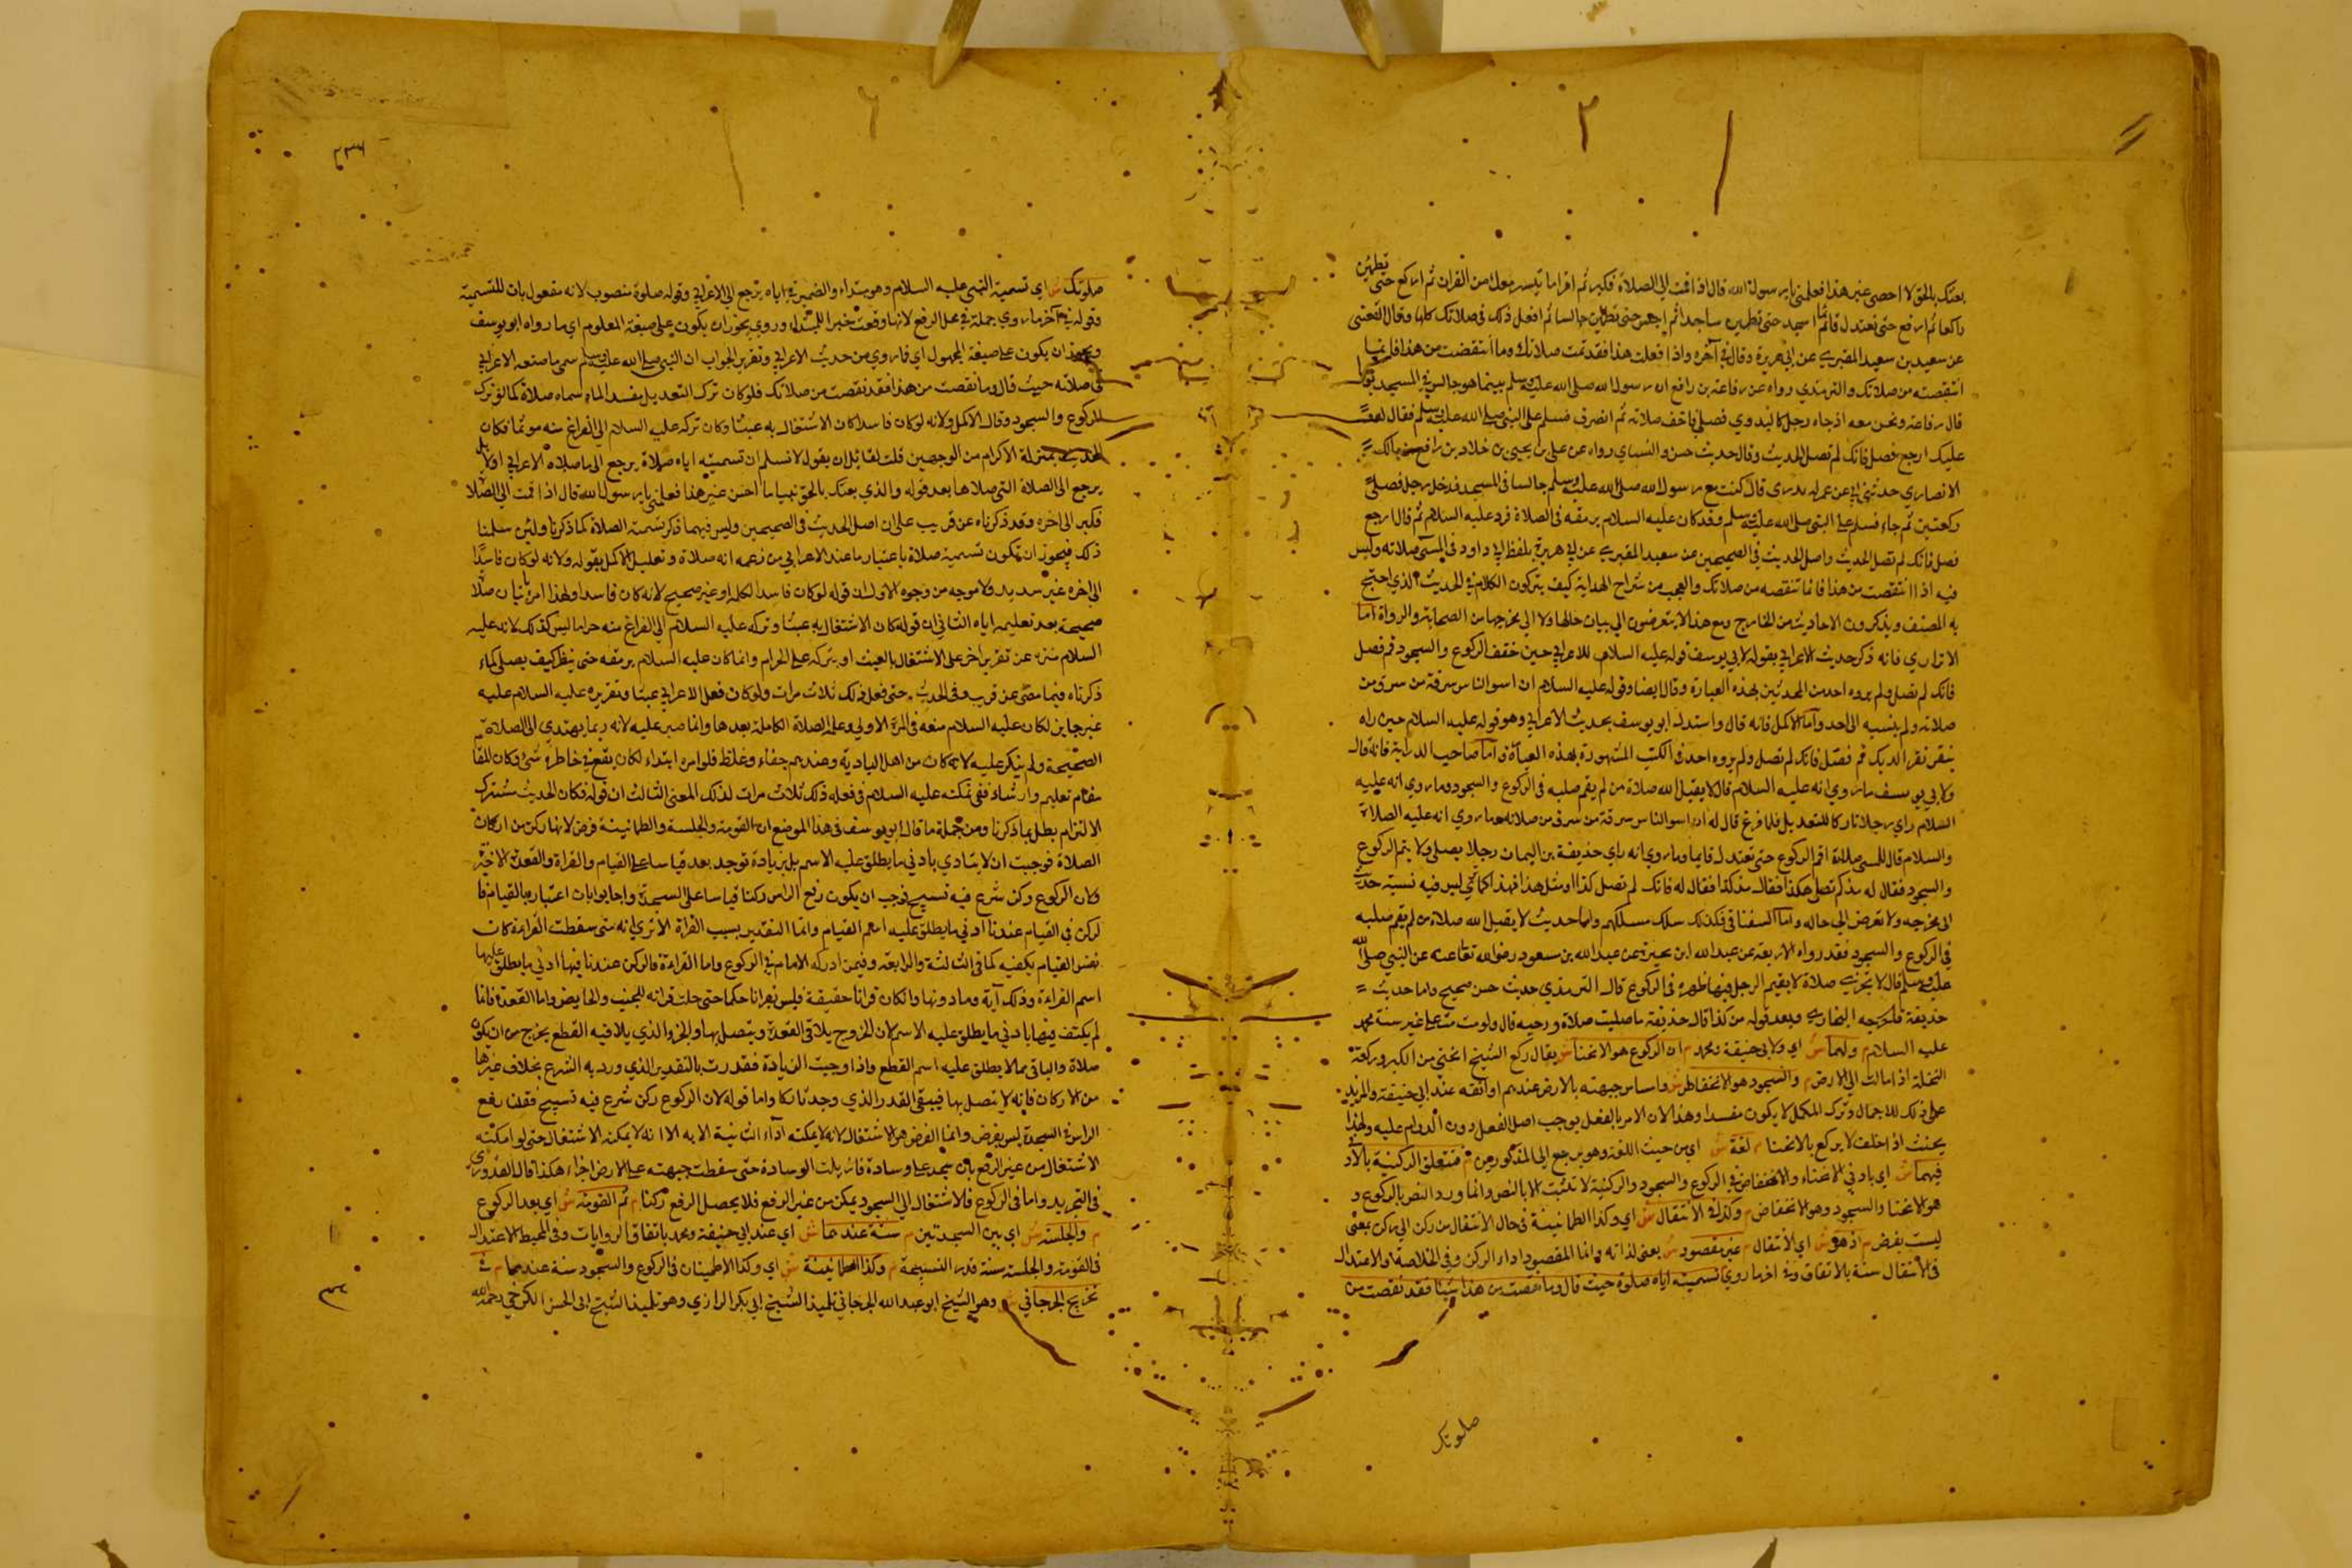 بعثك بالحق لا احصى غير هذا فعلمني يا رسول الله قال اذا قمت الى الصلاة فكبر ثم اقرا ما تيسر معك من القران ثم اركع حتى تطمئن
راكعا ثم ارفع حتى تعتدل قائما ثم اسجد حتى تطمئن ساجدا ثم اجلس حتى تطمئن جالسا ثم افعل ذلك في صلاتك كلها وقال القعنبي
عن سعيد بن سعيد المقبري عن ابي هريرة وقال في آخره واذا فعلت هذا فقد تمت صلاتك وما انتقصت من هذا فانما
انتقصته من صلاتك والترمذي رواه عن رفاعة بن رافع ان رسول الله صلى الله عليه وسلم بينما هو جالس في المسجد يوما
قال رفاعة ونحن معه اذ جاء رجل كالبدوي فصلى فاخف صلاته ثم انصرف فسلم على النبي صلى الله عليه وسلم فقال
عليك ارجع فصل فانك لم تصل الحديث وقال حديث حسن والنسائي رواه عن علي بن يحيى بن خلاد بن رافع بن مالك
الانصاري حدثني ابي عن عم له بدري قال كنت مع رسول الله صلى الله عليه وسلم جالسا في المسجد فدخل رجل فصلى
ركعتين ثم جاء فسلم على النبي صلى الله عليه وسلم وقد كان عليه السلام يرمقه في الصلاة فرد عليه السلام ثم قال ارجع
فصل فانك لم تصل الحديث واصل الحديث في الصحيحين عن سعيد المقبري عن ابي هريرة بلفظ ابي داود في المسئ صلاته وليس
فيه اذا انتقصت من هذا فانما تنقصه من صلاتك والعجب من شراح الهداية كيف يتركون الكلام في الحديث الذي احتج
به المصنف ويذكرون الاحاديث من الخارج ومع هذا لا يتعرضون الى بيان حالها ولا الى مخرجها من الصحابة والرواة اما
الاتراري فانه ذكر حديث الاعرابي بقوله لابي يوسف قوله عليه السلام للاعرابي حين خفف الركوع والسجود قم فصل
فانك لم تصل ولم يروه احد من المحدثين بهذه العبارة وقال ايضا وقوله عليه السلام ان اسوا الناس سرقة من سرق من
صلاته ولم ينسبه الى احد واما الاكمل فانه قال واستدل ابو يوسف بحديث الاعرابي وهو قوله عليه السلام حين راه
ينقر نقر الديك قم فصل فانك لم تصل ولم يروه احد في الكتب المشهورة بهذه العبارة واما صاحب الدراية فانه قال
ولابي يوسف ما روي انه عليه السلام قال لا يقبل الله صلاة من لم يقم صلبه في الركوع والسجود وما روي انه عليه
السلام راي رجلا تاركا للتعديل فلما فرغ قال له ان اسوا الناس سرقة من سرق من صلاته وما روي انه عليه الصلاة
والسلام قال للمسئ صلاته اقم الركوع حتى تعتدل قايما وما روي انه راي حذيفة بن اليمان رجلا يصلي ولا يتم الركوع
والسجود فقال له مذكم تصلي هكذا فقال مذ كذا فقال له فانك لم تصل كذا او مثل هذا فهذا كما ترى ليس فيه نسبة حديث
الى مخرجه ولا تعرض الى حاله واما السغناقي فكذلك سلك مسلكهم واما حديث لا يقبل الله صلاة من لم يقم صلبه
في الركوع والسجود فقد رواه الاربعة عن عبد الله ابن سخبرة عن عبد الله بن مسعود رضي الله تعالى عنه عن النبي صلى الله
عليه وسلم قال لا تجزئ صلاة لا يقيم الرجل فيها ظهره في الركوع قال الترمذي حديث حسن صحيح واما حديث
حذيفة فاخرجه البخاري وبعد قوله من كذا قال حذيفة ما صليت صلاة قال ولو مت مت على غير سنة محمد
عليه السلام م ولهما ش اي ولابي حنيفة ومحمد م ان الركوع هو الانحنا ش يقال ركع الشيخ انحنى من الكبر وركعت
النخلة اذا مالت الى الارض م والسجود هو الانخفاض ش واساس جبهته بالارض عندهم او انفه عند ابي حنيفة والمزيد
على ذلك للاجمال وترك المكمل لا يكون مفسدا وهذا لان الامر بالفعل يوجب اصل الفعل دون الدوام عليه ولهذا
يحنث اذا حلف لا يركع بالانحنا م لغة ش اي من حيث اللغة وهو يرجع الى المذكورين م فتتعلق الركنية بالادنى
فيهما ش اي بادنى الانحناء والانخفاض في الركوع والسجود والركنية لا تثبت الا بالنص وانما ورد النص بالركوع و
هو الانحنا والسجود وهو الانخفاض م وكذا في الانتقال ش اي وكذا الطمانينة في حال الانتقال من ركن الى ركن يعني
ليست بفرض م اذ هو ش اي الانتقال م غير مقصود ش يعني لذاته وانما المقصود اداء الركن وفي الخلاصة والاعتدال
في الانتقال سنة بالاتفاق م وفي اخر ما روي تسميته اياه صلوة حيث قال وما نقصت من هذا شيئا فقد نقصت من
صلوتك
صلوتك ش اي تسمية النبي عليه السلام وهو مبتداء والضمير في اياه يرجع الى الاعرابي وقوله صلوة منصوب لانه مفعول ثان للتسمية
وقوله في آخر ما روي جملة في محل الرفع لانها وقعت خبرا للمبتداء وروي يجوز ان يكون على صيغة المعلوم اي ما رواه ابو يوسف
ويجوز ان يكون على صيغة المجهول اي فيما روي من حديث الاعرابي وتقرير الجواب ان النبي صلى الله عليه وسلم سمى ما صنعه الاعرابي
في صلاته حيث قال وما نقصت من هذا فقد نقصت من صلاتك فلو كان ترك التعديل مفسدا لما سماه صلاة كما لو ترك
الركوع والسجود وقال الاكمل ولانه لو كان فاسدا كان الاشتغال به عبثا وكان تركه عليه السلام الى الفراغ منه موثما فكان
الحديث بمنزلة الاكرام من الوجهين قلت لقائل ان يقول لا نسلم ان تسميته اياه صلاة يرجع الى ما صلاه الاعرابي اولا بل
يرجع الى الصلاة التي صلاها بعد قوله والذي بعثك بالحق نبيا ما احسن غير هذا فعلمني يا رسول الله قال اذا قمت الى الصلا
فكبر الى اخره وقد ذكرناه عن قريب على ان اصل الحديث في الصحيحين وليس فيهما ذكر تسمية الصلاة كما ذكرنا ولئن سلمنا
ذلك فيجوز ان تكون تسميته صلاة باعتبار ما عند الاعرابي من زعمه انه صلاة وتعليل الاكمل بقوله ولانه لو كان فاسدا
الى اخره غير سديد ولا موجه من وجوه الاول ان قوله لو كان فاسدا لكله او غير صحيح لانه كان فاسدا ولهذا امر باتيان صلا
صحيحة بعد تعليمه اياه الثاني ان قوله كان الاشتغال به عبثا وتركه عليه السلام الى الفراغ منه حراما ليس كذلك لانه عليه
السلام منزه عن تقرير اخر على الاشتغال بالعبث او بتركه على الحرام وانما كان عليه السلام يرمقه حتى ينظر كيف يصلي كما
ذكرناه فيما مضى عن قريب وفي الحديث حتى فعل ذلك ثلاث مرات ولو كان فعل الاعرابي عبثا وتقريره عليه السلام عليه
غير جايز لكان عليه السلام منعه في المرة الاولى وعلمه الصلاة الكاملة بعدها وانما صبر عليه لانه ربما يهتدي الى الصلاة
الصحيحة ولم ينكر عليه لانه كان من اهل البادية وعندهم جفاء وغلظ فلو امره ابتداء لكان يقع في خاطره شئ وكان المقا
مقام تعليم وارشاد ففي تمكنه عليه السلام في فعله ذلك ثلاث مرات لذلك المعنى الثالث ان قوله فكان الحديث مشترك
الالتزام بطل بما ذكرنا ومن جملة ما قال ابو يوسف في هذا الموضع ان القومة والجلسة والطمانينة فرض لانها ركن من اركان
الصلاة فوجبت ان لا يتادي بادنى ما يطلق عليه الاسم بل بزيادة توجد بعد قياسا على القيام والقراة والقعدة الاخيرة
وكان الركوع ركن شرع فيه تسبيح فوجب ان يكون رفع الراس ركنا قياسا على السجدة واجابوا بان اعتباره بالقيام فا
لركن في القيام عندنا ادنى ما يطلق عليه اسم القيام وانما التقدير بسبب القراة الا ترى انه متى سقطت القراءة كان
نفس القيام يكفيه كما في الثالثة والرابعة وفيمن ادركه الامام في الركوع واما القراءة فالركن عندنا فيها ادنى ما يطلق عليها
اسم القراءة وذلك آية وما دونها وان كان قرانا حقيقة فليس بقرانا حكما حتى حلت قرانه للجنب والحايض واما القعدة فانما
لم يكتف فيها بادنى ما يطلق عليه الاسم لان الخروج يلاقي القعدة ويتصل بها والجزو الذي يلاقيه القطع يخرج من ان يكون
صلاة والباقي مما لا يطلق عليه اسم القطع واذا وجبت الزيادة فقدرت بالتقدير الذي ورد به الشرع بخلاف غيرها
من الاركان فانه لا يتصل بها فيبقى القدر الذي وجد ركنا واما قوله لان الركوع ركن شرع فيه تسبيح فقلنا رفع
الراس في السجدة ليس بفرض وانما الفرض هو الاشتغال لانه لا يمكنه اداء الثانية الا به الا انه لا يمكنه الاشتغال حتى لو امكنه
الاشتغال من غير الرفع بان سجد على وسادة فازيلت الوسادة حتى سقطت جبهته على الارض اجزاءه هكذا قال القدوري
في التجريد واما في الركوع فالاشتغال الى السجود يمكن من غير الرفع فلا يحصل الرفع ركنا م ثم القومة ش اي بعد الركوع
م والجلسة ش اي بين السجدتين م سنة عندهما ش اي عند ابي حنيفة ومحمد باتفاق الروايات وفي المحيط الاعتدال
في القومة والجلسة سنة قدر التسبيحة م وكذا الطمانينة ش اي وكذا الاطمينان في الركوع والسجود سنة عندهما م في
تخريج الجرجاني ش وهو الشيخ ابو عبد الله الجرجاني تلميذ الشيخ ابي بكر الرازي وهو تلميذ الشيخ ابي الحسن الكرخي رحمه الله